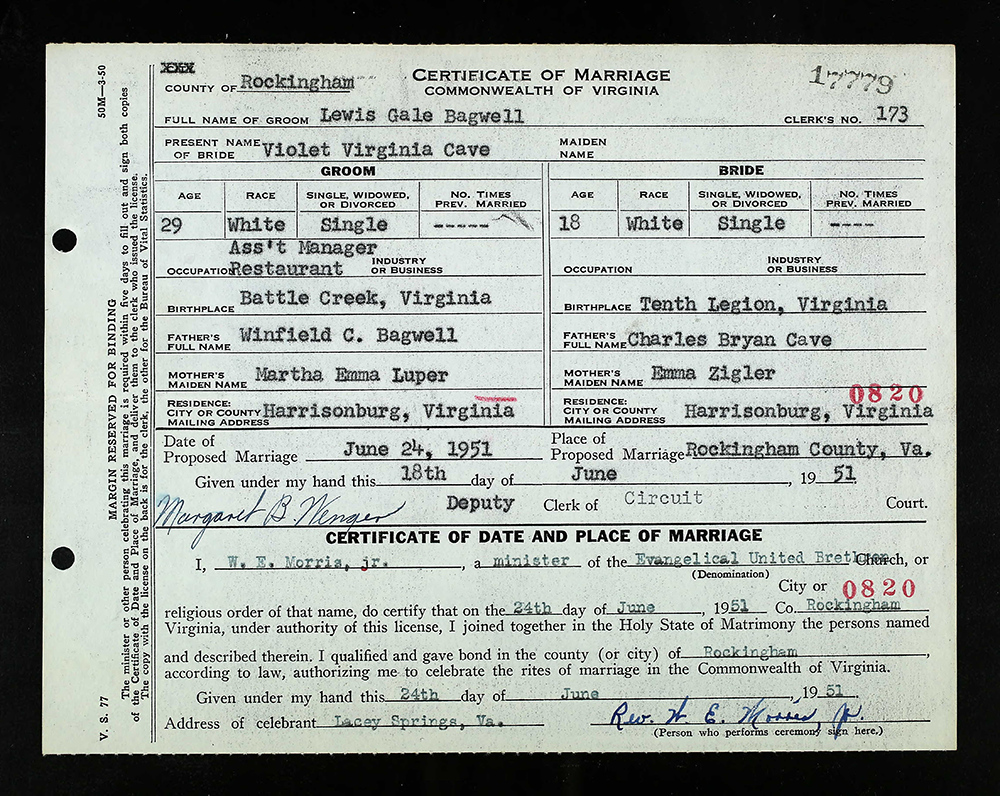 XXX
COUNTY OF Rockingham
CERTIFICATE OF MARRIAGE
COMMONWEALTH OF VIRGINIA
17779
FULL NAME OF GROOM Lewis Gale Bagwell CLERK'S NO. 173
PRESENT NAME OF BRIDE Violet Virginia Cave MAIDEN NAME
GROOM
BRIDE
AGE RACE SINGLE, WIDOWED, OR DIVORCED NO. TIMES PREV. MARRIED
AGE RACE SINGLE, WIDOWED, OR DIVORCED NO. TIMES PREV. MARRIED
29 White Single -----
18 White Single ----
OCCUPATION Ass't Manager Restaurant INDUSTRY OR BUSINESS
OCCUPATION INDUSTRY OR BUSINESS
BIRTHPLACE Battle Creek, Virginia
BIRTHPLACE Tenth Legion, Virginia
FATHER'S FULL NAME Winfield C. Bagwell
FATHER'S FULL NAME Charles Bryan Cave
MOTHER'S MAIDEN NAME Martha Emma Luper
MOTHER'S MAIDEN NAME Emma Zigler
0820
RESIDENCE: CITY OR COUNTY MAILING ADDRESS Harrisonburg, Virginia
RESIDENCE: CITY OR COUNTY MAILING ADDRESS Harrisonburg, Virginia
Date of Proposed Marriage June 24, 1951 Place of Proposed Marriage Rockingham County, Va.
Given under my hand this 18th day of June, 19 51
Margaret B. Wenger Deputy Clerk of Circuit Court.
CERTIFICATE OF DATE AND PLACE OF MARRIAGE
I, W. E. Morris, jr., a minister of the Evangelical United Brethren Church, or
(Denomination)
City or 0820
religious order of that name, do certify that on the 24th day of June, 1951 Co. Rockingham
Virginia, under authority of this license, I joined together in the Holy State of Matrimony the persons named
and described therein. I qualified and gave bond in the county (or city) of Rockingham,
according to law, authorizing me to celebrate the rites of marriage in the Commonwealth of Virginia.
Given under my hand this 24th day of June, 1951
Address of celebrant Lacey Springs, Va. Rev. W. E. Morris, Jr.
(Person who performs ceremony sign here.)
50M—3-50
MARGIN RESERVED FOR BINDING
The minister or other person celebrating this marriage is required within five days to fill out and sign both copies
of the Certificate of Date and Place of Marriage, and deliver them to the clerk who issued the license.
The copy with the license on the back is for the clerk, the other for the Bureau of Vital Statistics.
V. S. 77